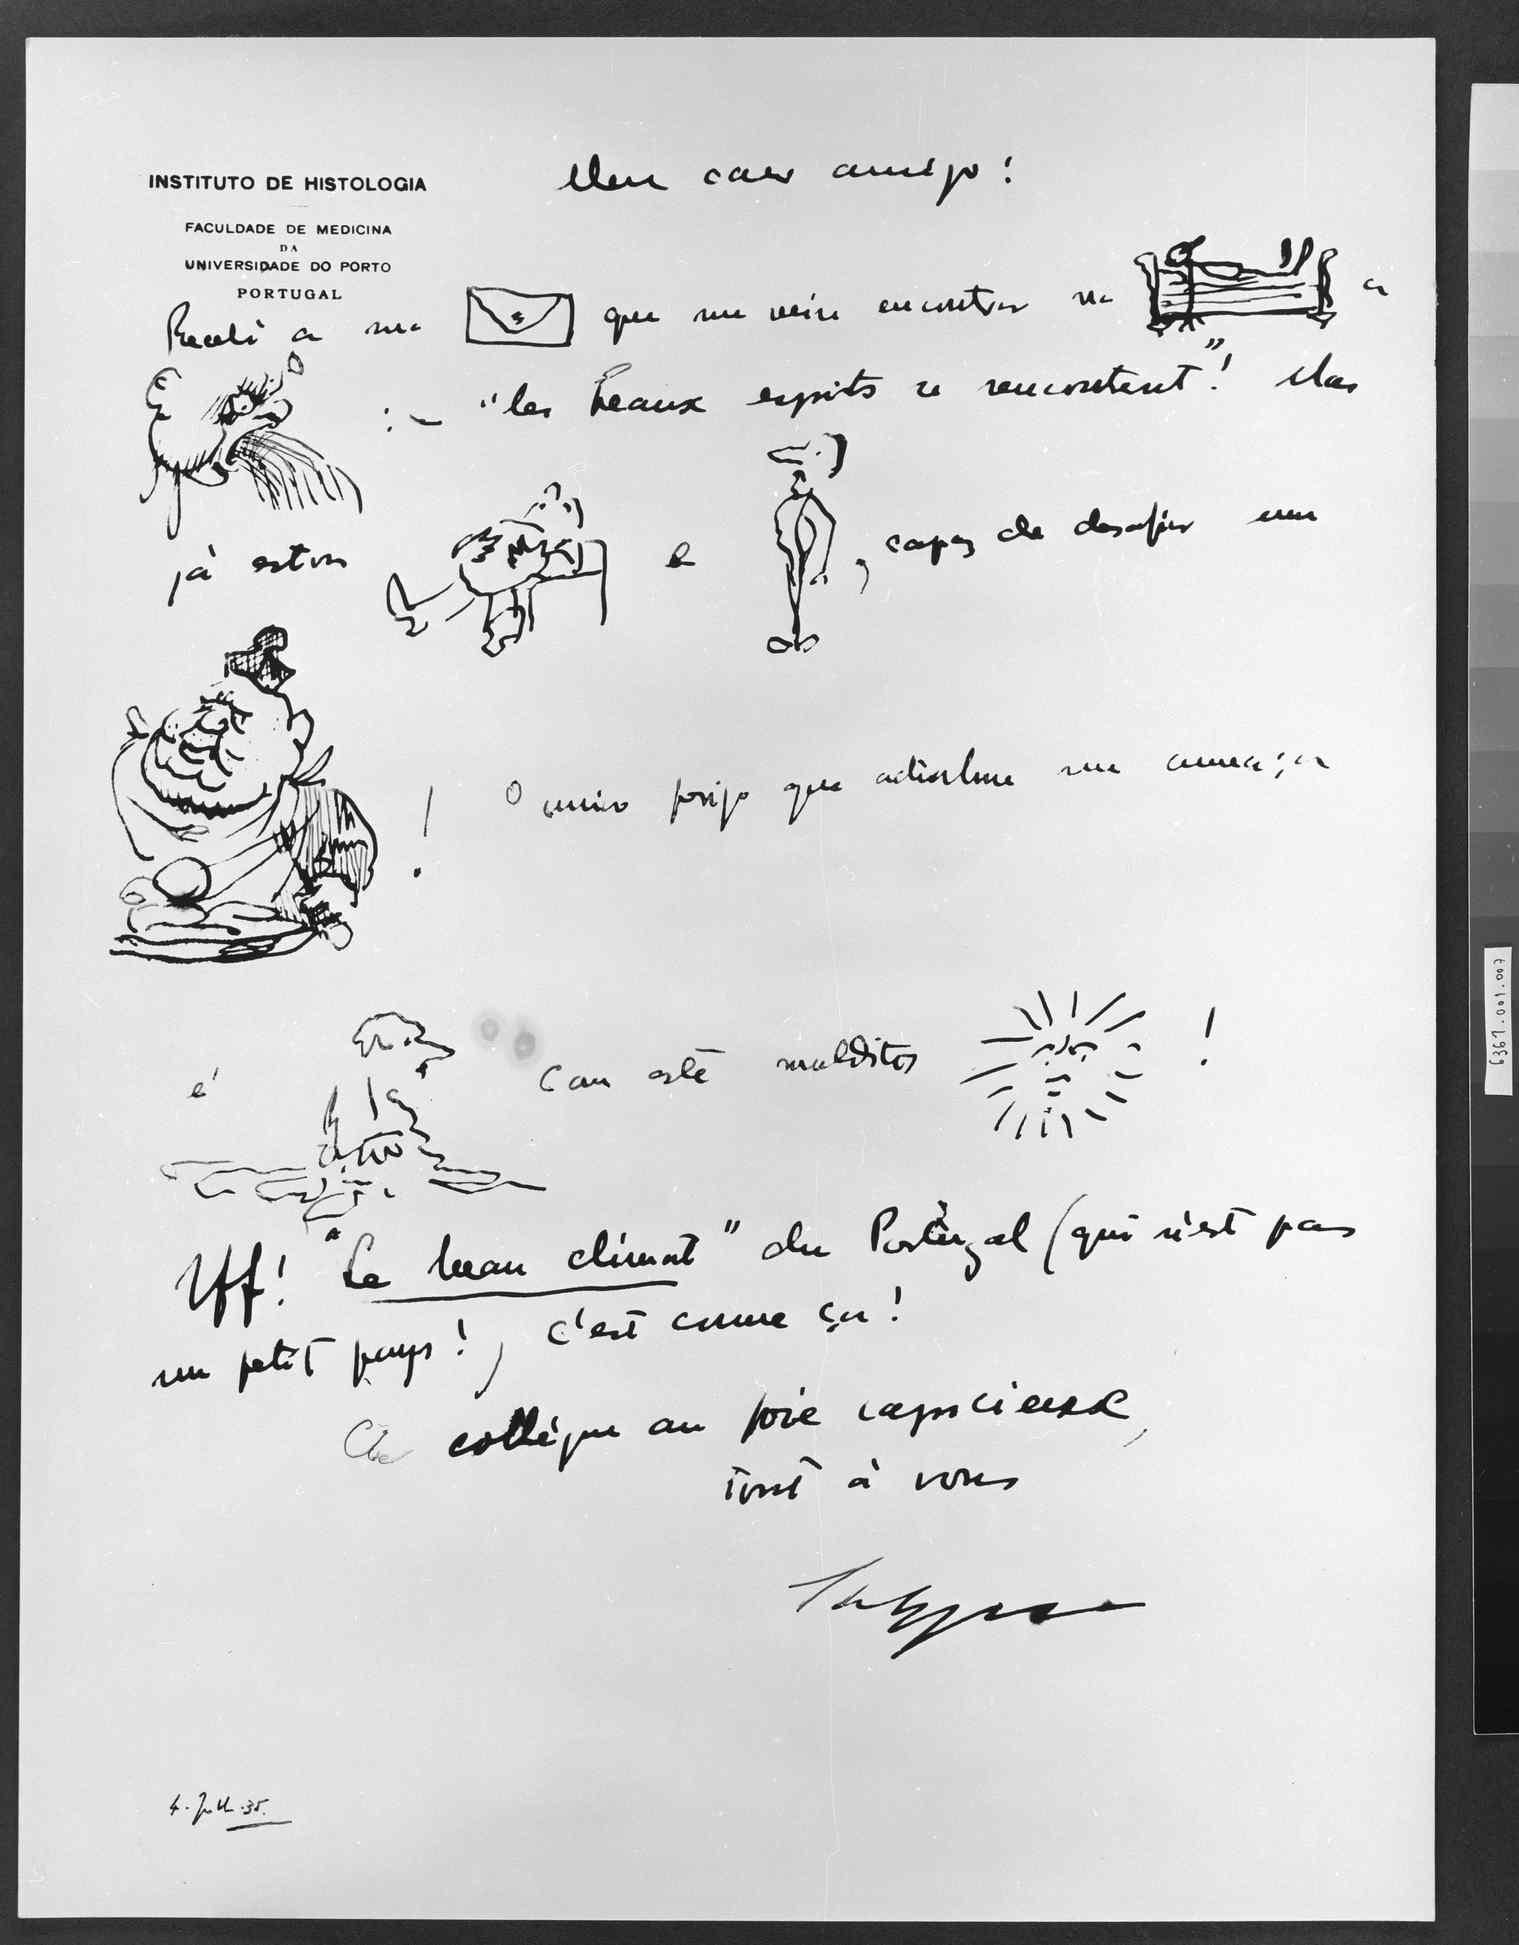 INSTITUTO DE HISTOLOGIA
FACULDADE DE MEDICINA
DA
UNIVERSIDADE DO PORTO
PORTUGAL
Meu caro amigo!
Recebi a sua que me veio encontrar na a
:— "les beaux esprits se rencontrent"! Mas
já estou e , capaz de desafiar um
! O unico perigo que actualme me ameaça
é com este maldito !
Uff! "Le beau climat" du Portugal (qui n'est pas
un petit pays!, c'est comme ça!
collègue au foie capricieux,
tout à vous
4. Julh. 35.
6367.001.007